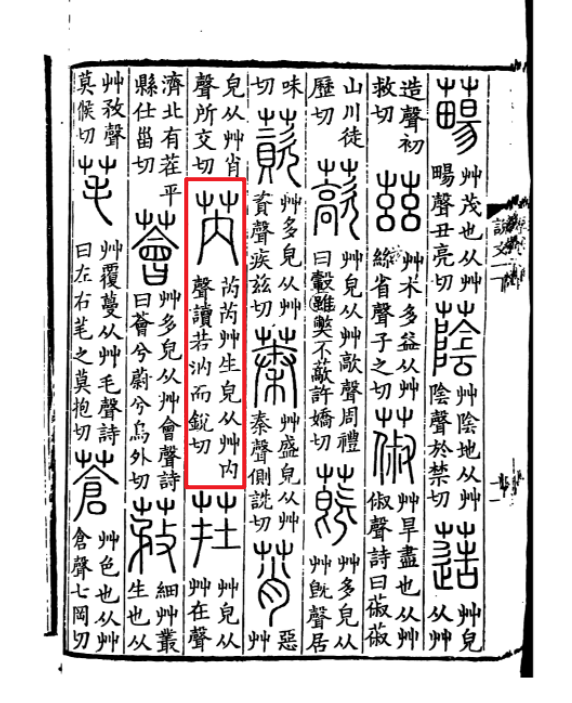 艸茂也从艸畼聲丑亮切 蔭 艸陰地从艸陰聲於禁切 艸皃从艸
造聲初救切 茲 艸木多益从艸絲省聲子之切 蔋 艸旱盡也从艸俶聲詩曰蔋蔋
山川徒歷切 藃 艸皃从艸歊聲周禮曰轂雖獘不藃許嬌切 蔇 艸多皃从艸旣聲居
味切 薋 艸多皃从艸資聲疾兹切 蓁 艸盛皃从艸秦聲側詵切 莦 惡艸
皃从艸肖聲所交切 芮 芮芮艸生皃从艸内聲讀若汭而銳切 茬 艸皃从艸在聲
濟北有茬平縣仕甾切 薈 艸多皃从艸會聲詩曰薈兮蔚兮烏外切 蓩 細艸叢生也从
艸敄聲莫候切 芼 艸覆蔓从艸毛聲詩曰左右芼之莫抱切 蒼 艸色也从艸倉聲七岡切